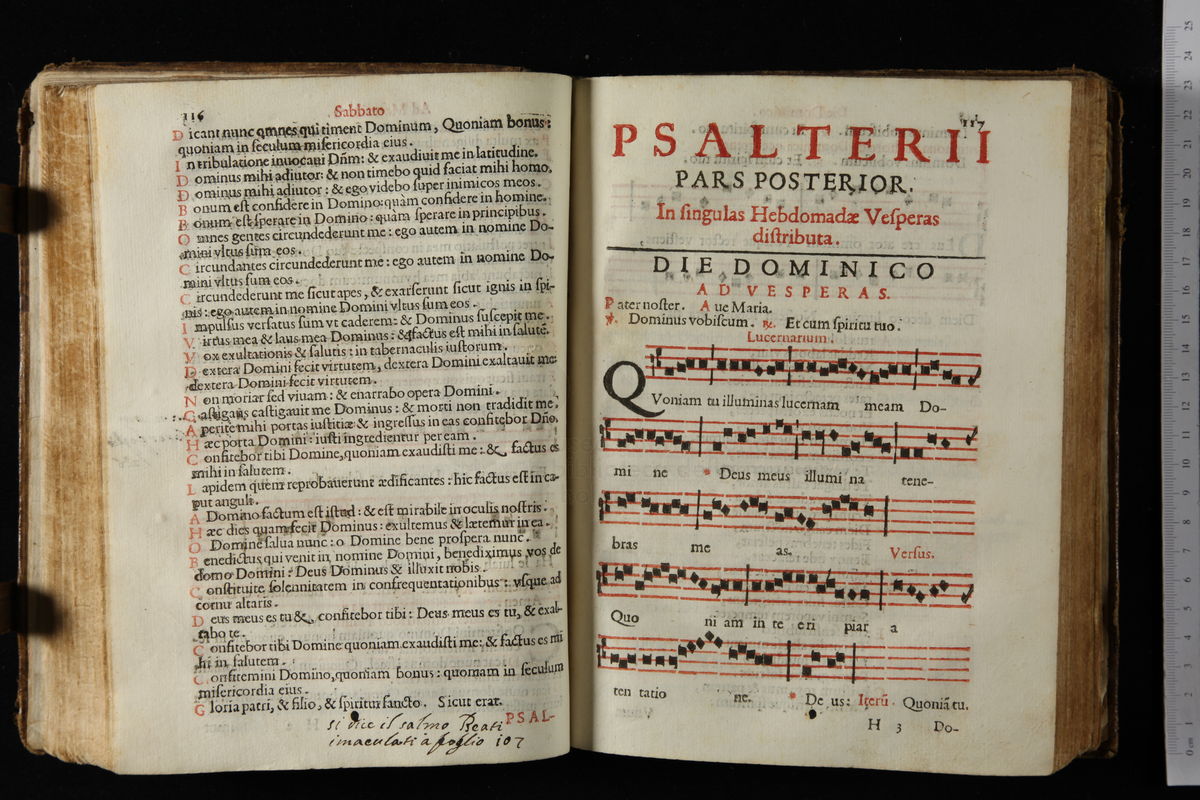 116
Sabbato
Dicant nunc omnes qui timent Dominum, Quoniam bonus:
quoniam in seculum misericordia eius.
In tribulatione inuocaui Dñm: & exaudiuit me in latitudine.
Dominus mihi adiutor: & non timebo quid faciat mihi homo.
Dominus mihi adiutor: & ego videbo super inimicos meos.
Bonum est confidere in Domino: quàm confidere in homine.
Bonum est sperare in Domino: quàm sperare in principibus.
Omnes gentes circundederunt me: ego autem in nomine Do-
mini vltus sum eos.
Circundantes circundederunt me: ego autem in nomine Do-
mini vltus sum eos.
Circundederunt me sicut apes, & exarserunt sicut ignis in spi-
nis: ego autem in nomine Domini vltus sum eos.
Impulsus versatus sum vt caderem: & Dominus suscepit me.
Virtus mea & laus mea Dominus: & factus est mihi in salutẽ.
Vox exultationis & salutis: in tabernaculis iustorum.
Dextera Domini fecit virtutem, dextera Domini exaltauit me:
dextera Domini fecit virtutem.
Non moriar sed viuam: & enarrabo opera Domini.
Castigans castigauit me Dominus: & morti non tradidit me.
Aperite mihi portas iustitiæ & ingressus in eas confitebor Dño.
Hæc porta Domini: iusti ingredientur per eam.
Confitebor tibi Domine, quoniam exaudisti me: & factus es
mihi in salutem.
Lapidem quem reprobauerunt ædificantes: hic factus est in ca-
put anguli.
A Domino factum est istud: & est mirabile in oculis nostris.
Hæc dies quam fecit Dominus: exultemus & lætemur in ea.
O Domine salua nunc: o Domine bene prospera nunc.
Benedictus qui venit in nomine Domini, benediximus vos de
domo Domini: Deus Dominus & illuxit nobis.
Constituite solennitatem in confrequentationibus: vsque ad
cornu altaris.
Deus meus es tu &, confitebor tibi: Deus meus es tu, & exal-
tabo te.
Confitebor tibi Domine quoniam exaudisti me: & factus es mi
hi in salutem.
Confitemini Domino, quoniam bonus: quoniam in seculum
misericordia eius.
Gloria patri, & filio, & spiritui sancto. Sicut erat.
PSAL-
si dice il salmo Beati
imaculati à foglio 107
117
PSALTERII
PARS POSTERIOR.
In singulas Hebdomadæ Vesperas
distributa.
DIE DOMINICO
AD VESPERAS.
Pater noster. Aue Maria.
℣. Dominus vobiscum. ℟. Et cum spiritu tuo.
Lucernarium.
QVoniam tu illuminas lucernam meam Do-
mi ne * Deus meus illumi na tene-
bras me as. Versus.
Quo ni am in te eri piar a
ten tatio ne. * De us: Iterũ. Quoniã tu.
H 3 Do-